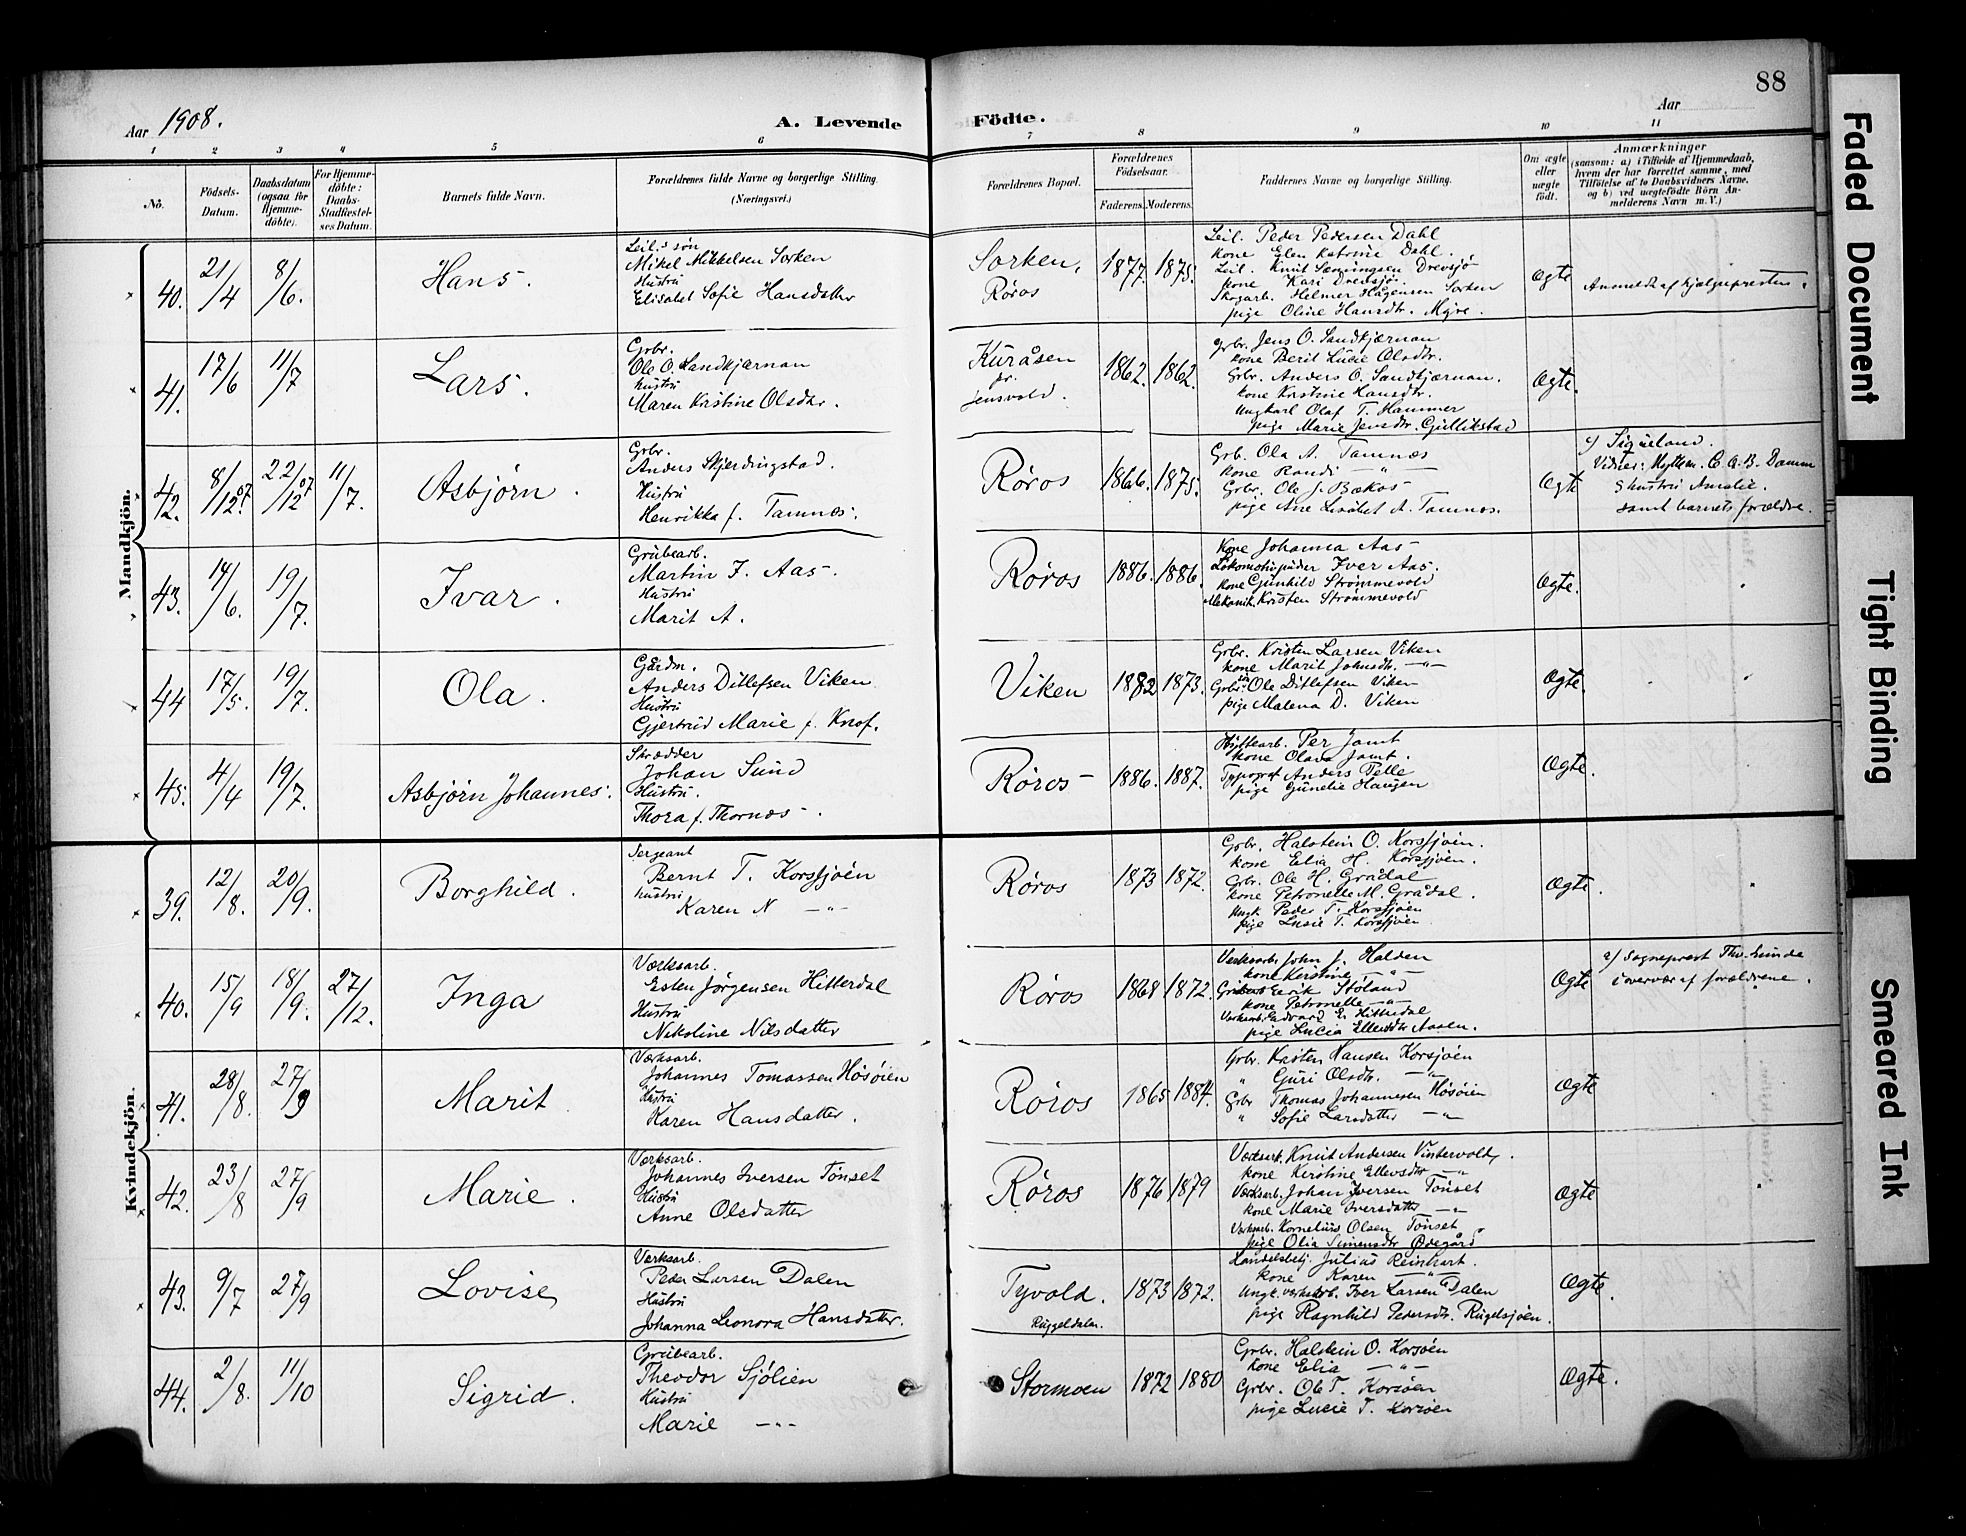 88
Aar 1908.
A. Levende Födte.
Aar
1 2 3 4 5 6 7 8 9 10 11
No.
Födsels-Datum.
Daabsdatum (ogsaa for Hjemme-döbte).
For Hjemme-döbte: Daabs-Stadfæstel-ses Datum.
Barnets fulde Navn.
Forældrenes fulde Navne og borgerlige Stilling.
(Næringsvei.)
Forældrenes Bopæl.
Forældrenes Födselsaar.
Faderens. Moderens.
Faddernes Navne og borgerlige Stilling.
Om ægte eller uægte födt.
Anmærkninger
(saasom: a) i Tilfælde af Hjemmedaab, hvem der har forrettet samme, med Tilföielse af to Daabsvidners Navne, og b) ved uægtefödte Börn An-melderens Navn m. V.)
Mandkjön.
40. 21/4 8/6. Hans.
Leil.s søn
Mikel Mikkelsen Sorken
Hustru
Elisabet Sofie Hansdatter
Sorken,
Røros
1877. 1875.
Leil. Peder Pedersen Dahl
kone Elen Katrine Dahl.
Leil. Knut Sæmingsen Drevsjø
kone Kari Drevsjø.
Skogarb. Helmer Hågensen Sorken
pige Oline Hansdtr. Myre.
Ægte
Anmeldt af hjælpepresten.
41. 17/6 11/7 Lars.
Grbr.
Ole O. Sandkjærnan
hustru
Maren Kristine Olsdtr.
Kuråsen
pr.
Jensvold.
1862. 1862.
Grbr. Jens O. Sandkjærnan
kone Berit Lucie Olsdtr.
Grbr. Anders O. Sandkjærnan.
kone Kristine Hansdtr.
Ungkarl Olaf T. Hammer
pige Marie Jensdtr. Gjullikstad
Ægte.
42. 8/12 07. 22/12 07 11/7. Asbjørn.
Grbr.
Anders Skjerdingstad.
Hustru
Henrikka f. Tamnæs.
Røros
1866. 1875.
Grb. Ola A. Tamnæs
kone Randi — " —
Grbr. Ole J. Bækos
pige Ane Lisabet A. Tamnæs.
Ægte
Vidner: Hyttem. C. A. B. Damm
& hustru Amalie.
samt barnets forældre.
43. 14/6. 19/7. Ivar.
Grubearb.
Martin I. Aas.
Hustru
Marit A.
Røros
1886. 1886.
Kone Johanna Aas
Lokomotivpudser Iver Aas.
kone Gunhild Strømmevold
Mekanik. Kristen Strømmevold
Ægte.
44 17/5. 19/7. Ola.
Gårdm.
Anders Ditlefsen Viken
Hustru
Gjertrud Marie f. Knof.
Viken
1882 1873.
Grbr. Kristen Larsen Viken
kone Marit Johnsdtr. — " —
Grbr. Ole Ditlefsen Viken
pige Malena D. Viken
Ægte.
45. 4/4 19/7. Asbjørn Johannes.
Skrædder
Johan Sund
Hustru.
Thora f. Thornæs.
Røros
1886. 1887.
Hyttearb. Per Jamt
kone Olava Jamt.
Typograf Anders Pelle
pige Gunelie Haugen
Ægte.
Kvindekjön.
39. 12/8. 20/9. Borghild.
Sergeant
Bernt T. Korssjøen
hustru
Karen N — " —
Røros
1873 1872.
Grbr. Halstein O. Korssjøen.
kone Elia H. Korssjøen.
Grbr. Ole H. Grådal
kone Petronelle M. Grådal.
Ungk. Peder T. Korssjøen
pige Lucie T. Korssjøen
Ægte.
40. 15/9 18/9. 27/12. Inga
Værksarb.
Esten Jørgensen Hitterdal
Hustru
Nikoline Nilsdatter
Røros
1868 1872.
Verksarb. John J. Halden
kone Kerstine — " —
Eerik Stöland
kone Petronelle — " —
Verksarb. Edvard E. Hitterdal
pige Lucia Ellevsdtr Aasen.
Ægte
a) Sogneprest Th. Lunde
i overvær af forældrene.
41. 28/8. 27/9 Marit
Værksarb.
Johannes Tomassen Høsøien
Hustru
Karen Hansdatter.
Røros
1865 1884.
Grbr. Karsten Hansen Korsjøen
" Guri Olsdtr. — " —
Grbr Thomas Johannesen Høsøien
" Sofie Larsdatter — " —
Ægte
42. 23/8 27/9 Marie.
Værksarb.
Johannes Iversen Tønset
Hustru
Anne Olsdatter
Røros
1876 1879
Værksarb. Knut Andersen Vintervold.
kone Kirstine Ellevsdtr — " —
Værksarb. Johan Iversen Tønset
kone Marie Iversdatter — " —
Værksarb. Kornelius Olsen Tønset
pige Olia Simensdtr Ødegård
Ægte
43. 9/7 27/9 Lovise
Værksarb.
Peder Larsen Dalen
Hustru
Johanna Leonora Hansdatter.
Tyvold.
Ruggeldalen.
1873 1872.
Handelsbetj. Julius Reinhart.
kone Karen — " —
Ungk. værksarb. Iver Larsen Dalen
pige Ragnhild Pedersdtr. Rugelsjøen.
Ægte.
44. 2/8. 11/10 Sigrid.
Grubearb.
Theodor Sjølien
Hustru
Marie — " —
Stormoen
1872 1880
Grbr. Halstein O. Korsøen
kone Elia — " —
Grbr. Ole T. Korsøen
pige Lucie T. Korsøen
Ægte.
Faded Document
Tight Binding
Smeared Ink